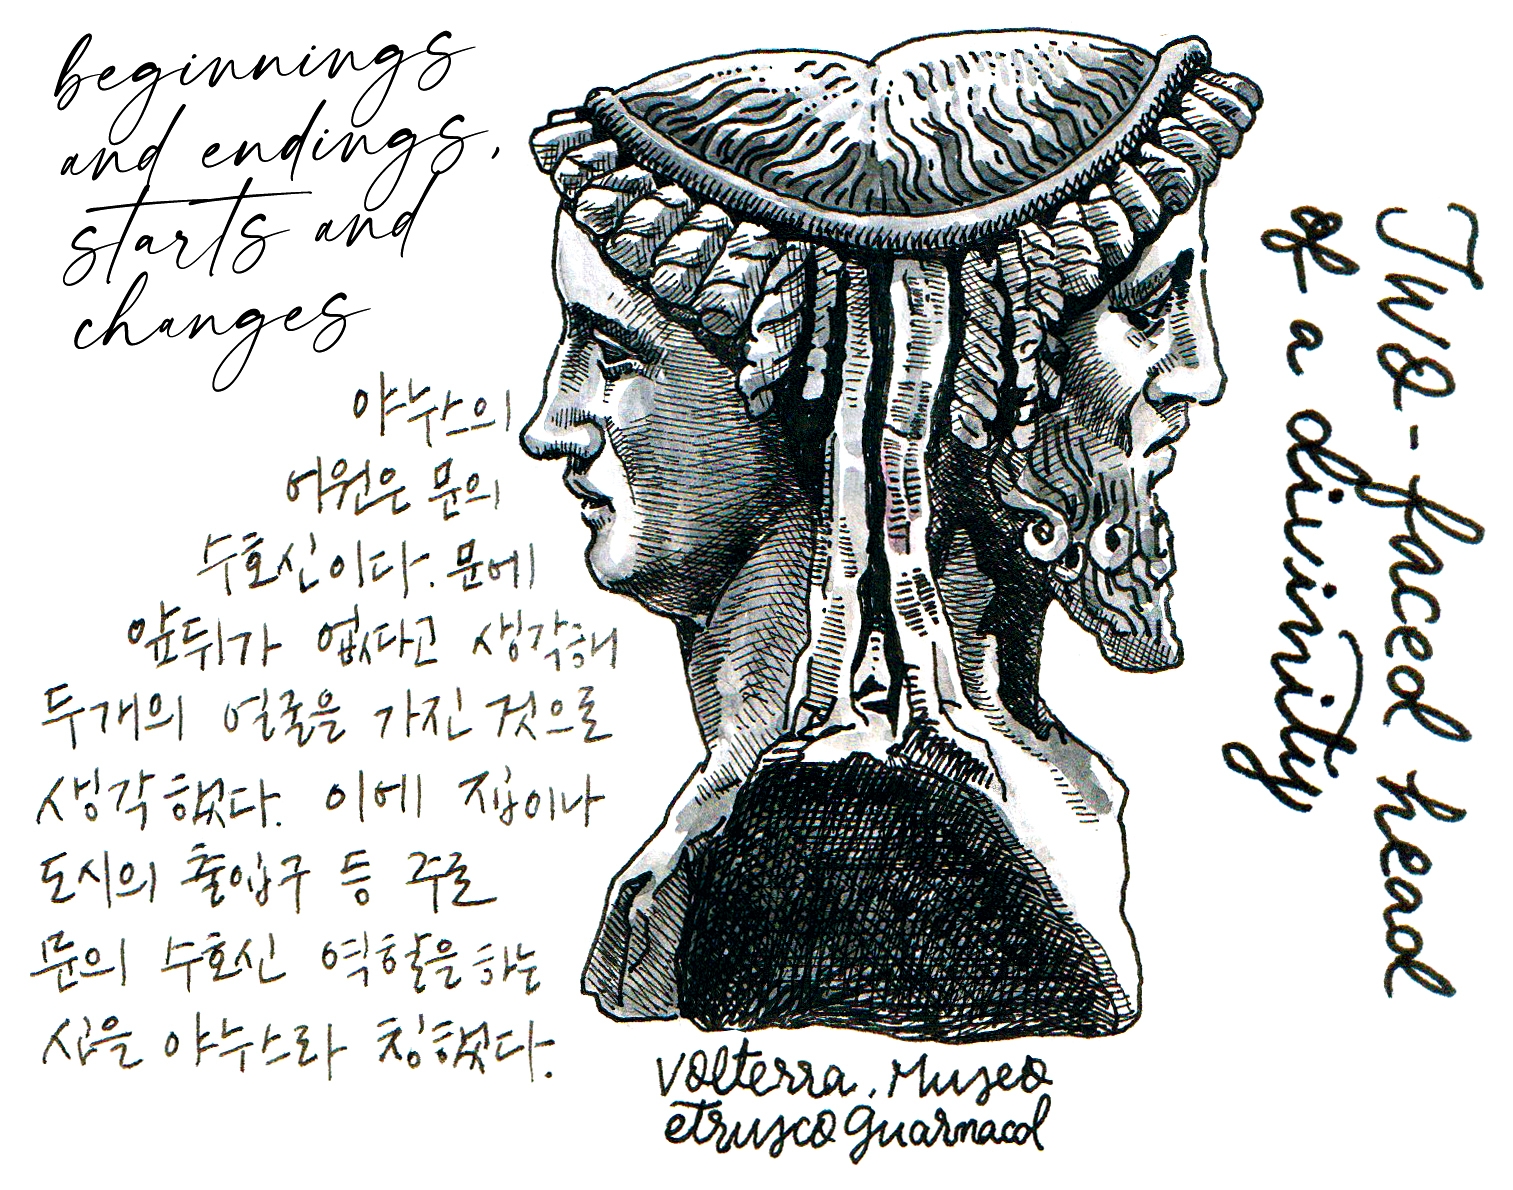 beginnings
and endings,
starts and
changes
야누스의
어원은 문의
수호신이다. 문에
앞뒤가 없다고 생각해
두개의 얼굴을 가진 것으로
생각했다. 이에 집이나
도시의 출입구 등 주로
문의 수호신 역할을 하는
신을 야누스라 칭했다.
Two-faced head
of a divinity
Volterra, Museo
etrusco guarnacol